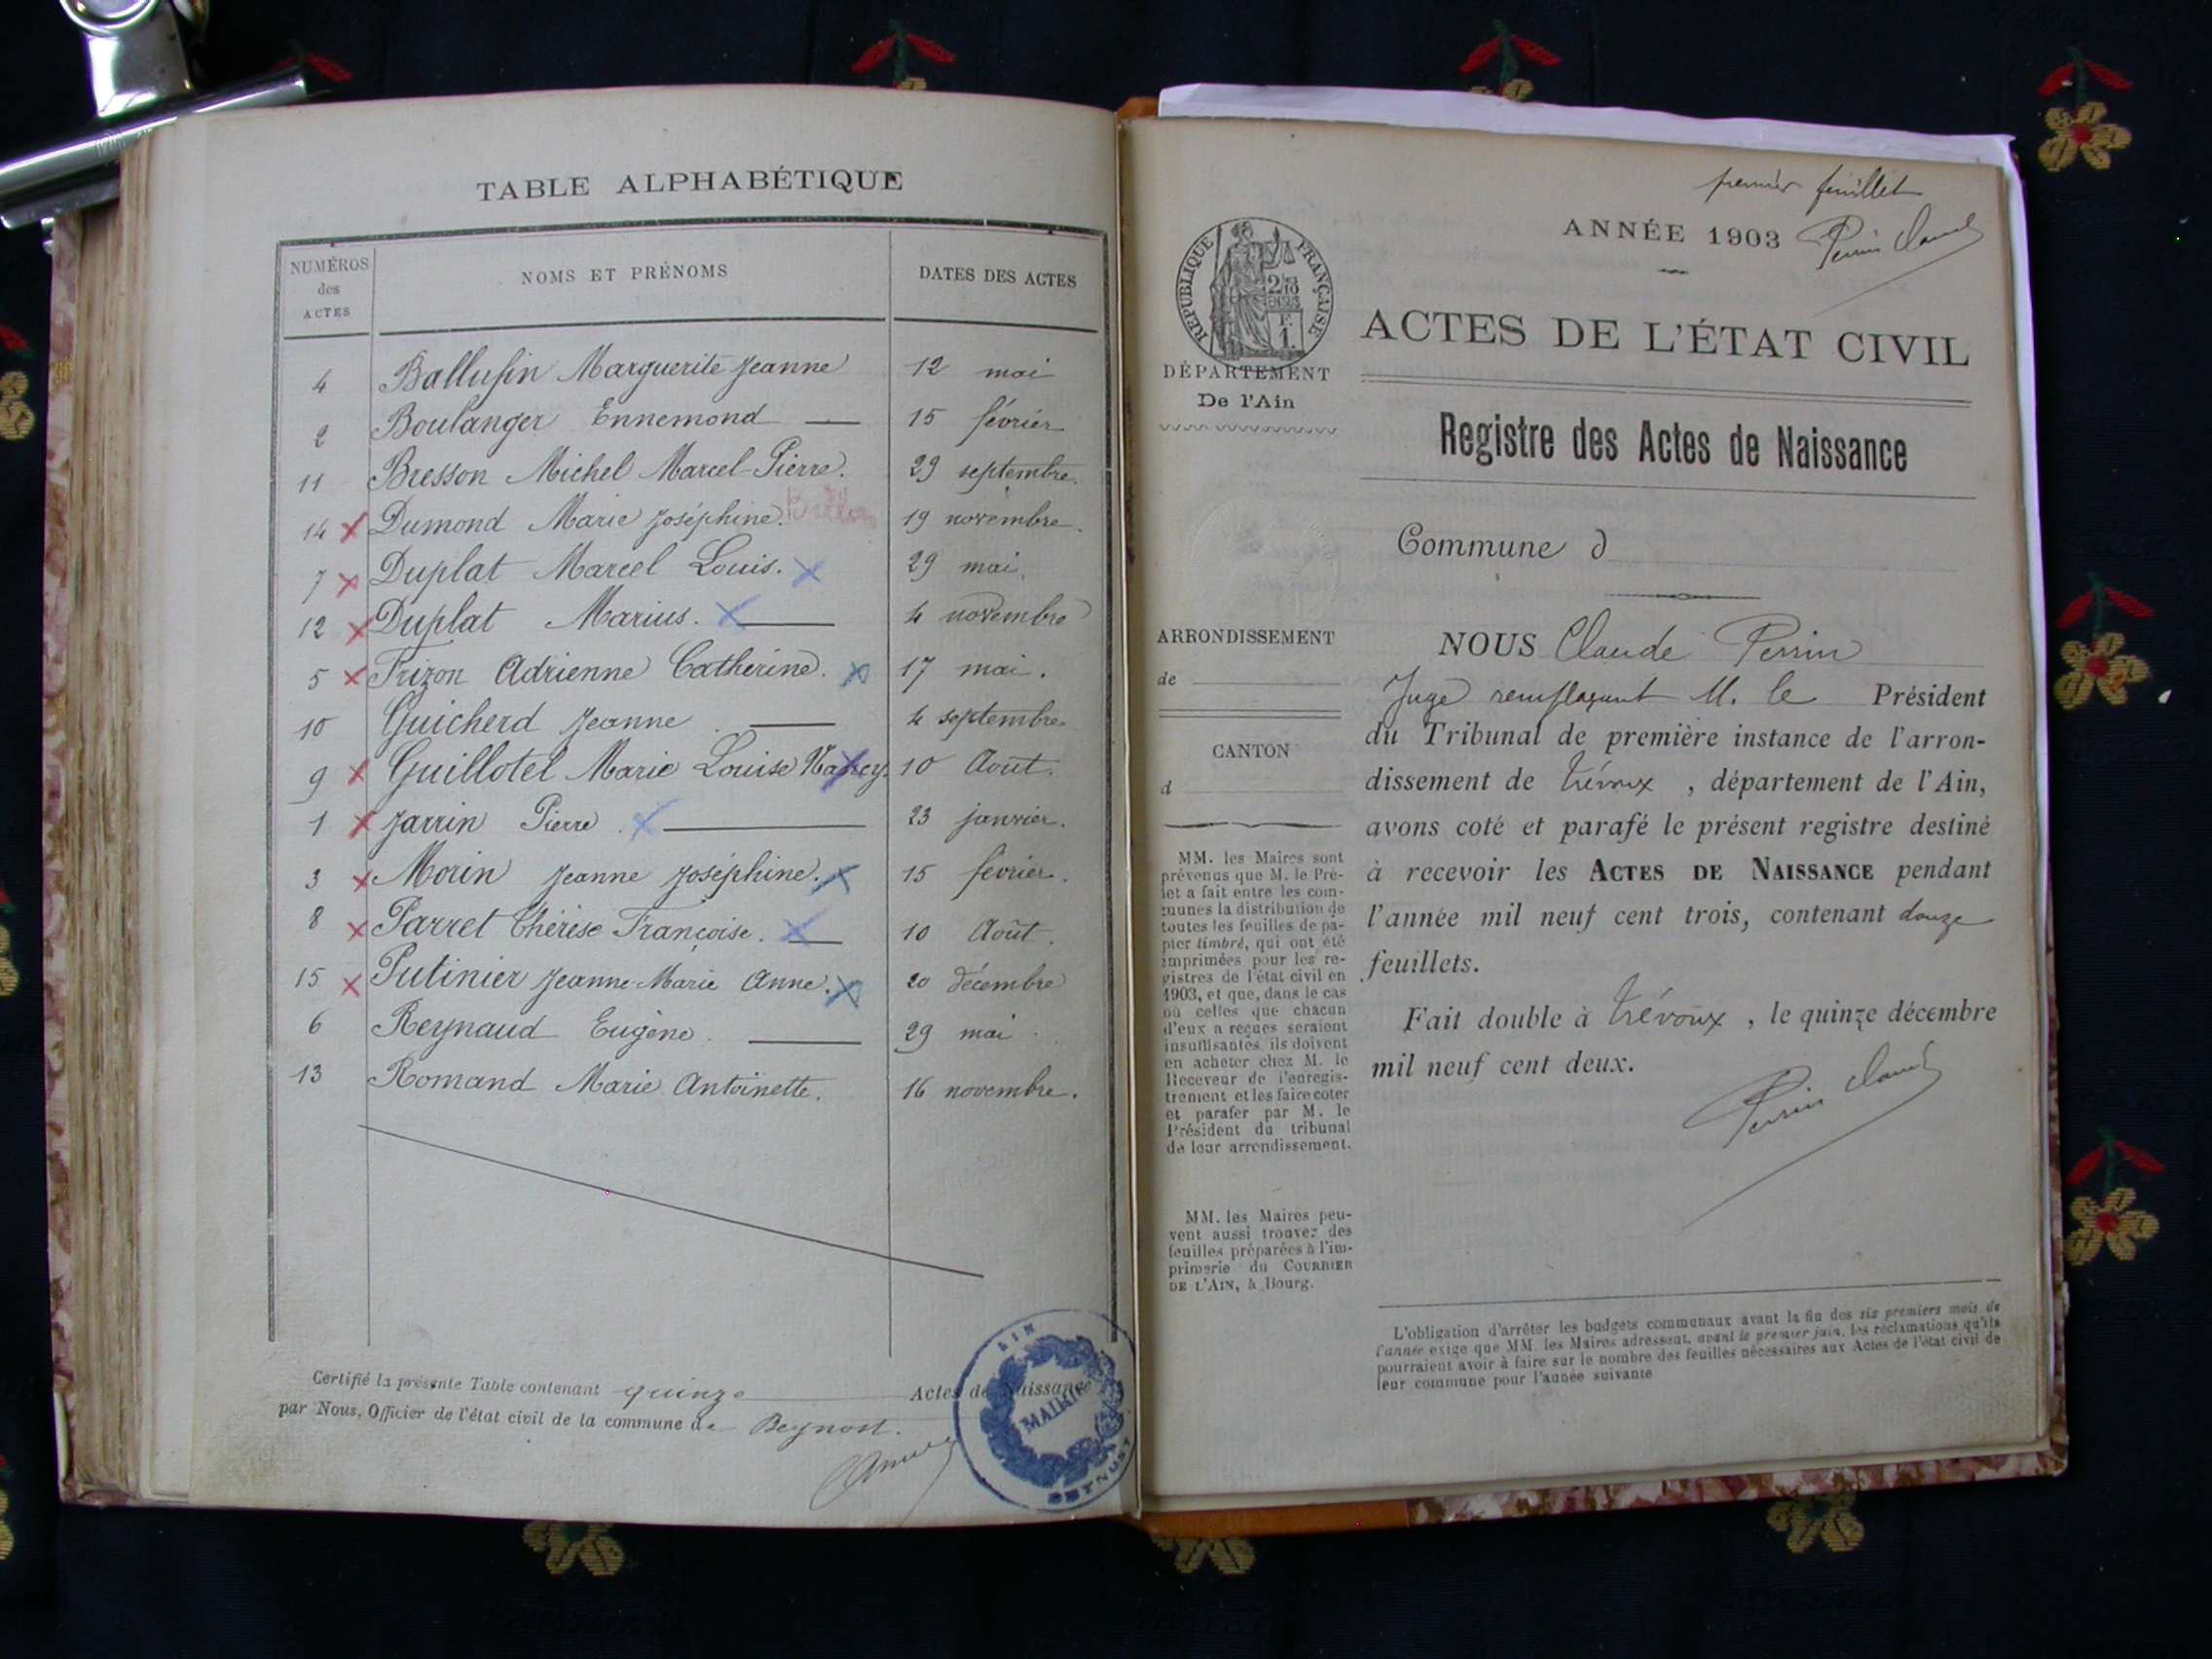 TABLE ALPHABÉTIQUE
NUMÉROS des ACTES NOMS ET PRÉNOMS DATES DES ACTES
4 Ballufin Marguerite Jeanne 12 mai
2 Boulanger Ennemond 15 février
11 Bresson Michel Marcel-Pierre. 29 septembre.
14 Dumond Marie Joséphine. 19 novembre.
7 Duplat Marcel Louis. 29 mai.
12 Duplat Marius. 4 novembre
5 Frizon Adrienne Catherine. 17 mai.
10 Guicherd Jeanne 4 septembre
9 Guillotel Marie Louise Nancy. 10 Août.
1 Jarrin Pierre. 23 janvier.
3 Morin Jeanne Joséphine. 15 février.
8 Parret Thérèse Françoise. 10 Août.
15 Putinier Jeanne-Marie Anne. 20 décembre
6 Reynaud Eugène. 29 mai
13 Romand Marie Antoinette. 16 novembre.
Certifié la présente Table contenant quinze Actes de Naissance
par Nous, Officier de l'état civil de la commune de Beynost.
AIN
MAIRIE
BEYNOST
premier feuillet
ANNÉE 1903 Perrin Claude
RÉPUBLIQUE FRANÇAISE
ACTES DE L'ÉTAT CIVIL
DÉPARTEMENT
De l'Ain
Registre des Actes de Naissance
Commune d
ARRONDISSEMENT
de
CANTON
d
MM. les Maires sont
prévenus que M. le Pré-
fet a fait entre les com-
munes la distribution de
toutes les feuilles de pa-
pier timbré, qui ont été
imprimées pour les re-
gistres de l'état civil en
1903, et que, dans le cas
où celles que chacun
d'eux a reçues seraient
insuffisantes ils doivent
en acheter chez M. le
Receveur de l'enregis-
trement et les faire coter
et parafer par M. le
Président du tribunal
de leur arrondissement.
MM. les Maires peu-
vent aussi trouver des
feuilles préparées à l'im-
primerie du COURRIER
DE L'AIN, à Bourg.
NOUS Claude Perrin
Juge remplaçant M. le Président
du Tribunal de première instance de l'arron-
dissement de Trévoux, département de l'Ain,
avons coté et parafé le présent registre destiné
à recevoir les ACTES DE NAISSANCE pendant
l'année mil neuf cent trois, contenant douze
feuillets.
Fait double à Trévoux, le quinze décembre
mil neuf cent deux.
Perrin Claude
L'obligation d'arrêter les budgets communaux avant la fin des six premiers mois de
l'année exige que MM. les Maires adressent, avant le premier juin, les réclamations qu'ils
pourraient avoir à faire sur le nombre des feuilles nécessaires aux Actes de l'état civil de
leur commune pour l'année suivante